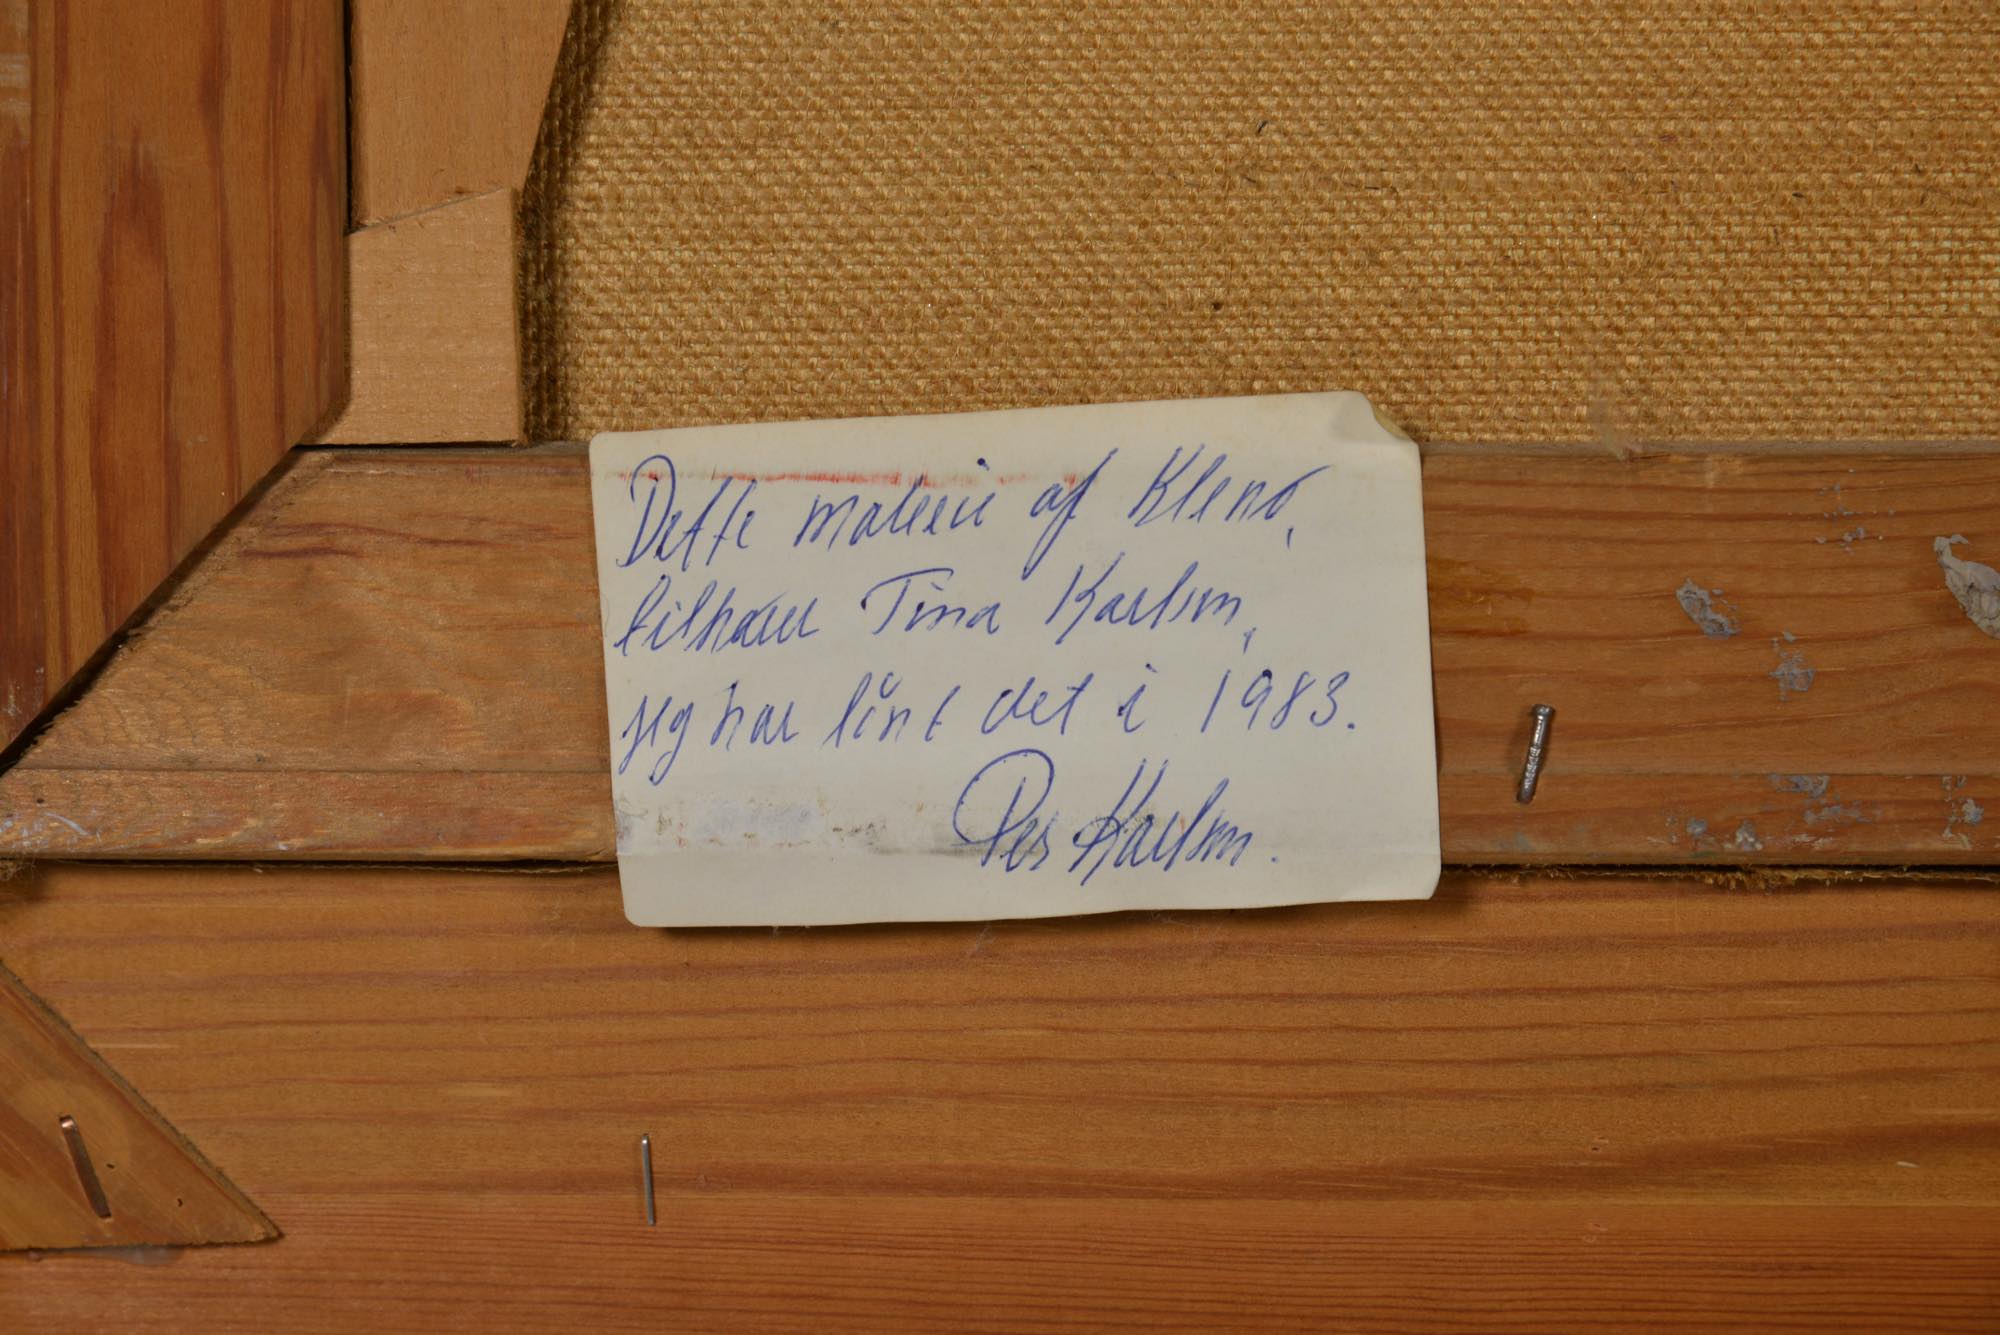 Dette maleri af Klenø,
tilhører Tina Karlsen,
jeg har lånt det i 1983.
Per Karlsen.